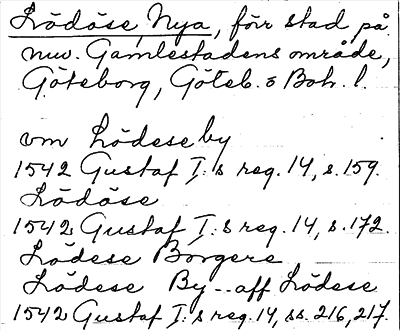 Lödöse, Nya, förr stad på
nuv. Gamlestadens område,
Göteborg, Göteb. o Boh. l.
om Lödese by
1542 Gustaf I:s reg. 14, s. 159.
Lödöse
1542 Gustaf I:s reg. 14, s. 172.
Lödese Borgere
Lödese By -- aff Lödese
1542 Gustaf I:s reg. 14, ss. 216, 217.